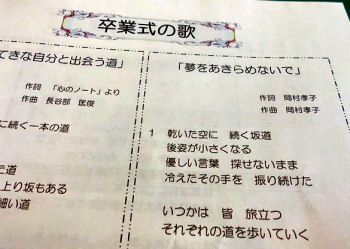 卒業式の歌
てきな自分と出会う道」
作詞 「心のノート」より
作曲 長谷部 匡俊
に続く一本の道
た道
上り坂もある
細い道
「夢をあきらめないで」
作詞 岡村孝子
作曲 岡村孝子
1 乾いた空に 続く坂道
後姿が小さくなる
優しい言葉 探せないまま
冷えたその手を 振り続けた
いつかは 皆 旅立つ
それぞれの道を歩いていく